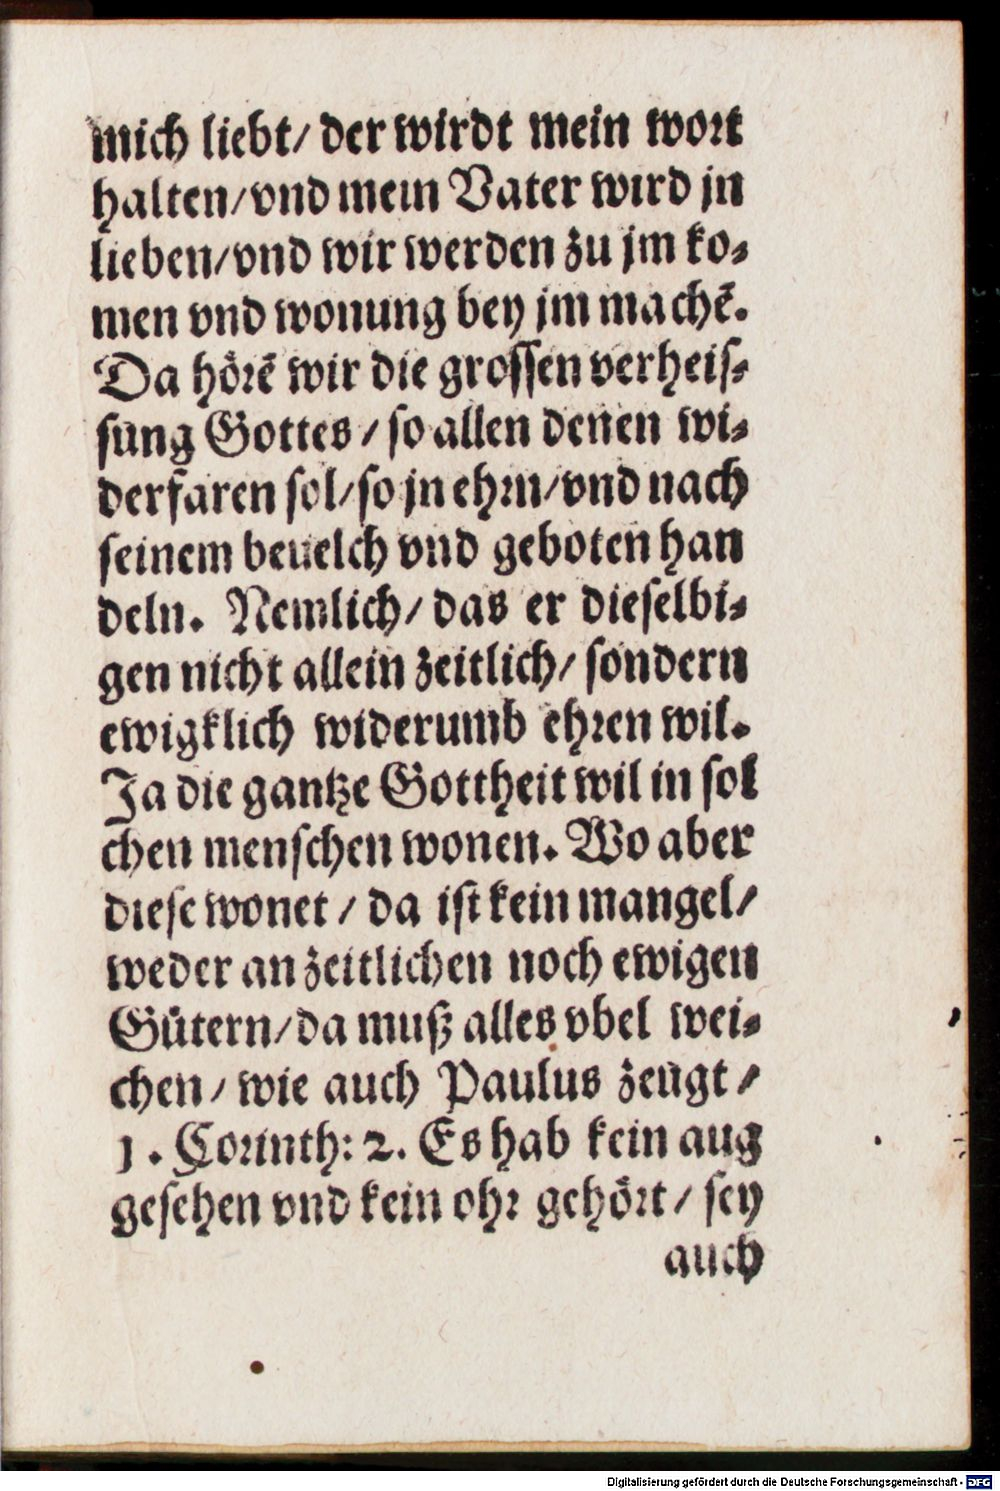 mich liebt/ der wirdt mein wort
halten/vnd mein Vater wird jn
lieben/vnd wir werden zu jm ko⸗
men vnd wonung bey jm machē.
Da hoͤrē wir die grossen verheis⸗
sung Gottes / so allen denen wi⸗
derfaren sol/so jn ehrn/vnd nach
seinem beuelch vnd geboten han
deln. Nemlich/ das er dieselbi⸗
gen nicht allein zeitlich/ sondern
ewigklich widerumb ehren wil.
Ja die gantze Gottheit wil in sol
chen menschen wonen. Wo aber
diese wonet / da ist kein mangel/
weder an zeitlichen noch ewigen
Guͤtern/da muß alles vbel wei⸗
chen / wie auch Paulus zeugt /
1. Corinth: 2. Es hab kein aug
gesehen vnd kein ohr gehoͤrt / sey
auch
Digitalisierung gefördert durch die Deutsche Forschungsgemeinschaft - DFG